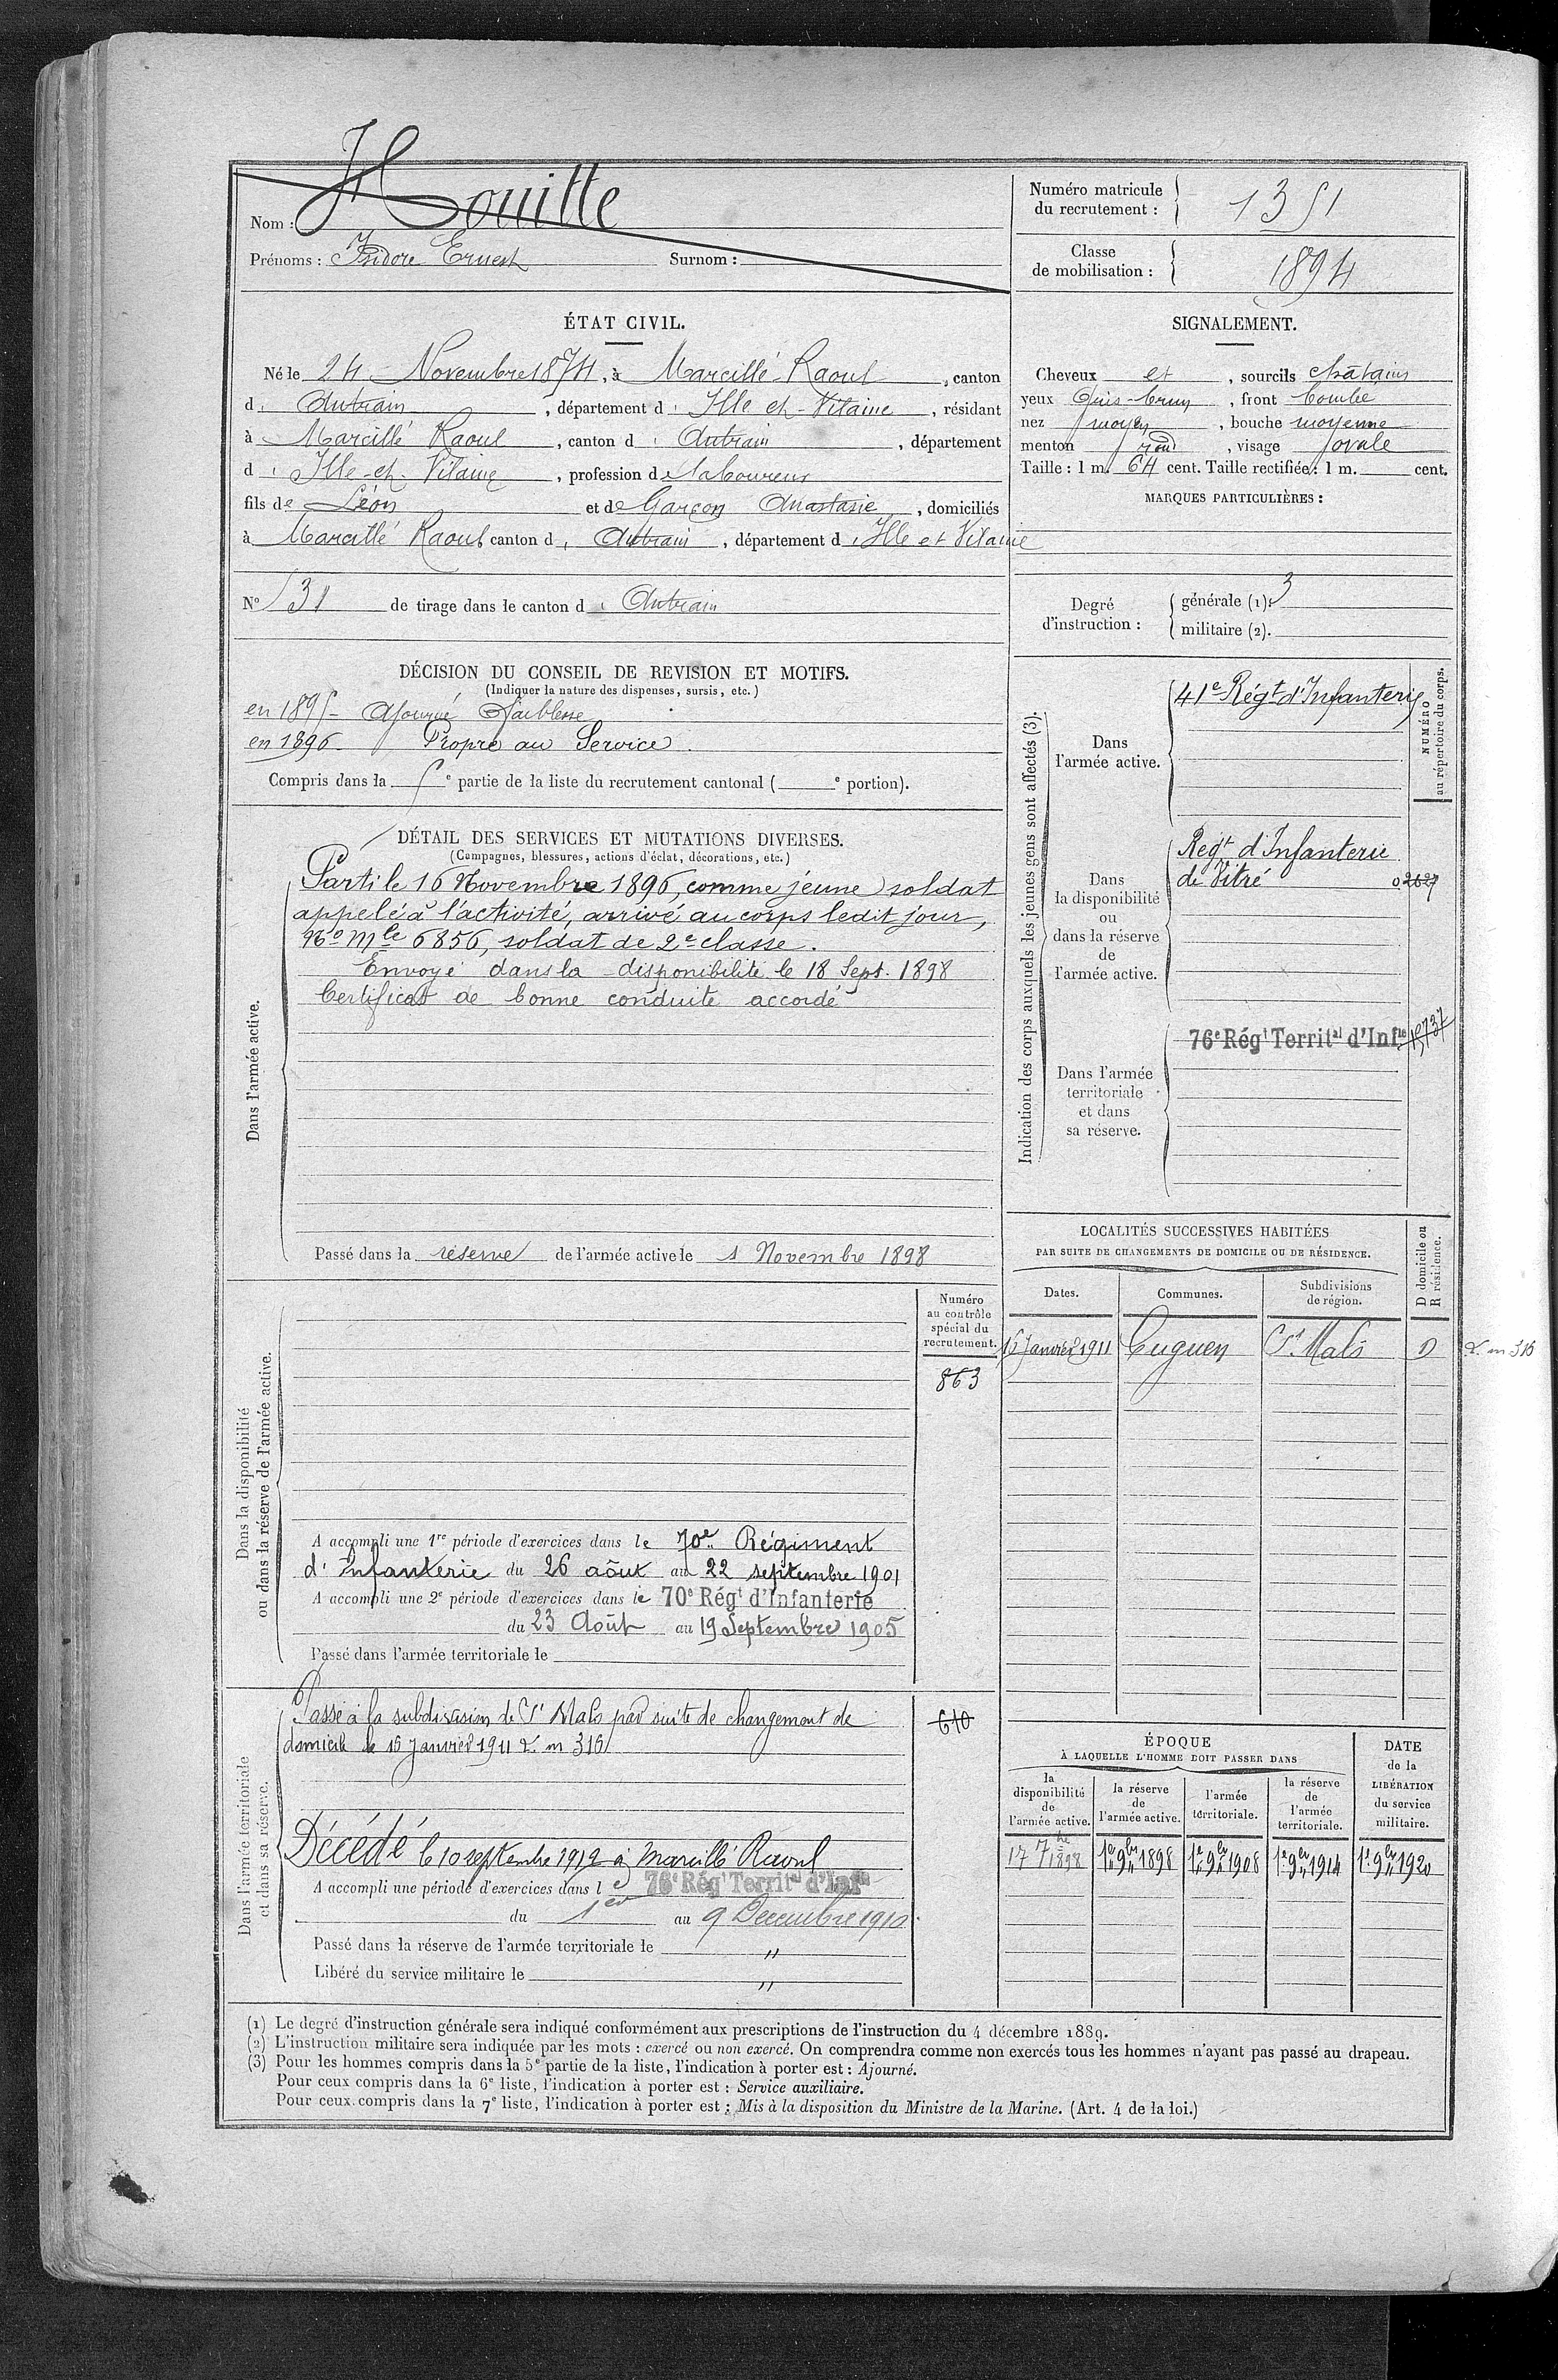 Nom : Houitte
Prénoms : Isidore Ernest Surnom :
Numéro matricule du recrutement : 1351
Classe de mobilisation : 1894
ÉTAT CIVIL.
Né le 24 Novembre 1874, à Marcillé-Raoul, canton
d'Antrain, département d'Ille et-Vilaine, résidant
à Marcillé Raoul, canton d'Antrain, département
d'Ille-et-Vilaine, profession de laboureur
fils de Léon et de Garçon Anastasie, domiciliés
à Marcillé Raoul canton d'Antrain, département d'Ille et Vilaine
N° 31 de tirage dans le canton d'Antrain
SIGNALEMENT.
Cheveux et, sourcils chatains
yeux Gris-brun, front bombé
nez moyen, bouche moyenne
menton rond, visage ovale
Taille : 1 m. 64 cent. Taille rectifiée : 1 m. cent.
MARQUES PARTICULIÈRES :
Degré d'instruction : générale (1): 3
militaire (2).
DÉCISION DU CONSEIL DE REVISION ET MOTIFS.
(Indiquer la nature des dispenses, sursis, etc.)
en 1895 - Ajourné faiblesse
en 1896 - Propre au Service.
Compris dans la 5e partie de la liste du recrutement cantonal ( e portion).
DÉTAIL DES SERVICES ET MUTATIONS DIVERSES.
(Campagnes, blessures, actions d'éclat, décorations, etc.)
Dans l'armée active.
Parti le 16 Novembre 1896, comme jeune soldat
appelé à l'activité, arrivé au corps ledit jour,
No Mle 6856, soldat de 2e classe.
Envoyé dans la disponibilité le 18 Sept. 1898
Certificat de bonne conduite accordé
Passé dans la réserve de l'armée active le 1 Novembre 1898
Indication des corps auxquels les jeunes gens sont affectés (3).
NUMÉRO au répertoire du corps.
Dans l'armée active.
41e Régt d'Infanterie
Dans la disponibilité ou dans la réserve de l'armée active.
Régt d'Infanterie
de Vitré
Dans l'armée territoriale et dans sa réserve.
76e Régt Territal d'Infie
LOCALITÉS SUCCESSIVES HABITÉES
PAR SUITE DE CHANGEMENTS DE DOMICILE OU DE RÉSIDENCE.
Dates. Communes. Subdivisions de région. D domicile ou R résidence.
15 Janvier 1911 Cuguen St Malo D
Dans la disponibilité ou dans la réserve de l'armée active.
Numéro au contrôle spécial du recrutement.
863
A accompli une 1re période d'exercices dans le 70e Régiment
d'Infanterie du 26 août au 22 septembre 1901
A accompli une 2e période d'exercices dans le 70e Régt d'Infanterie
du 23 Août au 19 Septembre 1905
Passé dans l'armée territoriale le
Dans l'armée territoriale et dans sa réserve.
Passé à la subdivision de St Malo par suite de changement de
domicile le 15 Janvier 1911
610
Décédé le 10 septembre 1912 à Marcillé Raoul
A accompli une période d'exercices dans le 76e Régt Territal d'Infie
du 1er au 9 Decembre 1910.
Passé dans la réserve de l'armée territoriale le "
Libéré du service militaire le "
ÉPOQUE
À LAQUELLE L'HOMME DOIT PASSER DANS
la disponibilité de l'armée active. la réserve de l'armée active. l'armée territoriale. la réserve de l'armée territoriale.
DATE de la LIBÉRATION du service militaire.
17 7bre 1898 1er 9bre 1898 1er 9bre 1908 1er 9bre 1914 1er 9bre 1920
(1) Le degré d'instruction générale sera indiqué conformément aux prescriptions de l'instruction du 4 décembre 1889.
(2) L'instruction militaire sera indiquée par les mots : exercé ou non exercé. On comprendra comme non exercés tous les hommes n'ayant pas passé au drapeau.
(3) Pour les hommes compris dans la 5e partie de la liste, l'indication à porter est : Ajourné.
Pour ceux compris dans la 6e liste, l'indication à porter est : Service auxiliaire.
Pour ceux compris dans la 7e liste, l'indication à porter est : Mis à la disposition du Ministre de la Marine. (Art. 4 de la loi.)